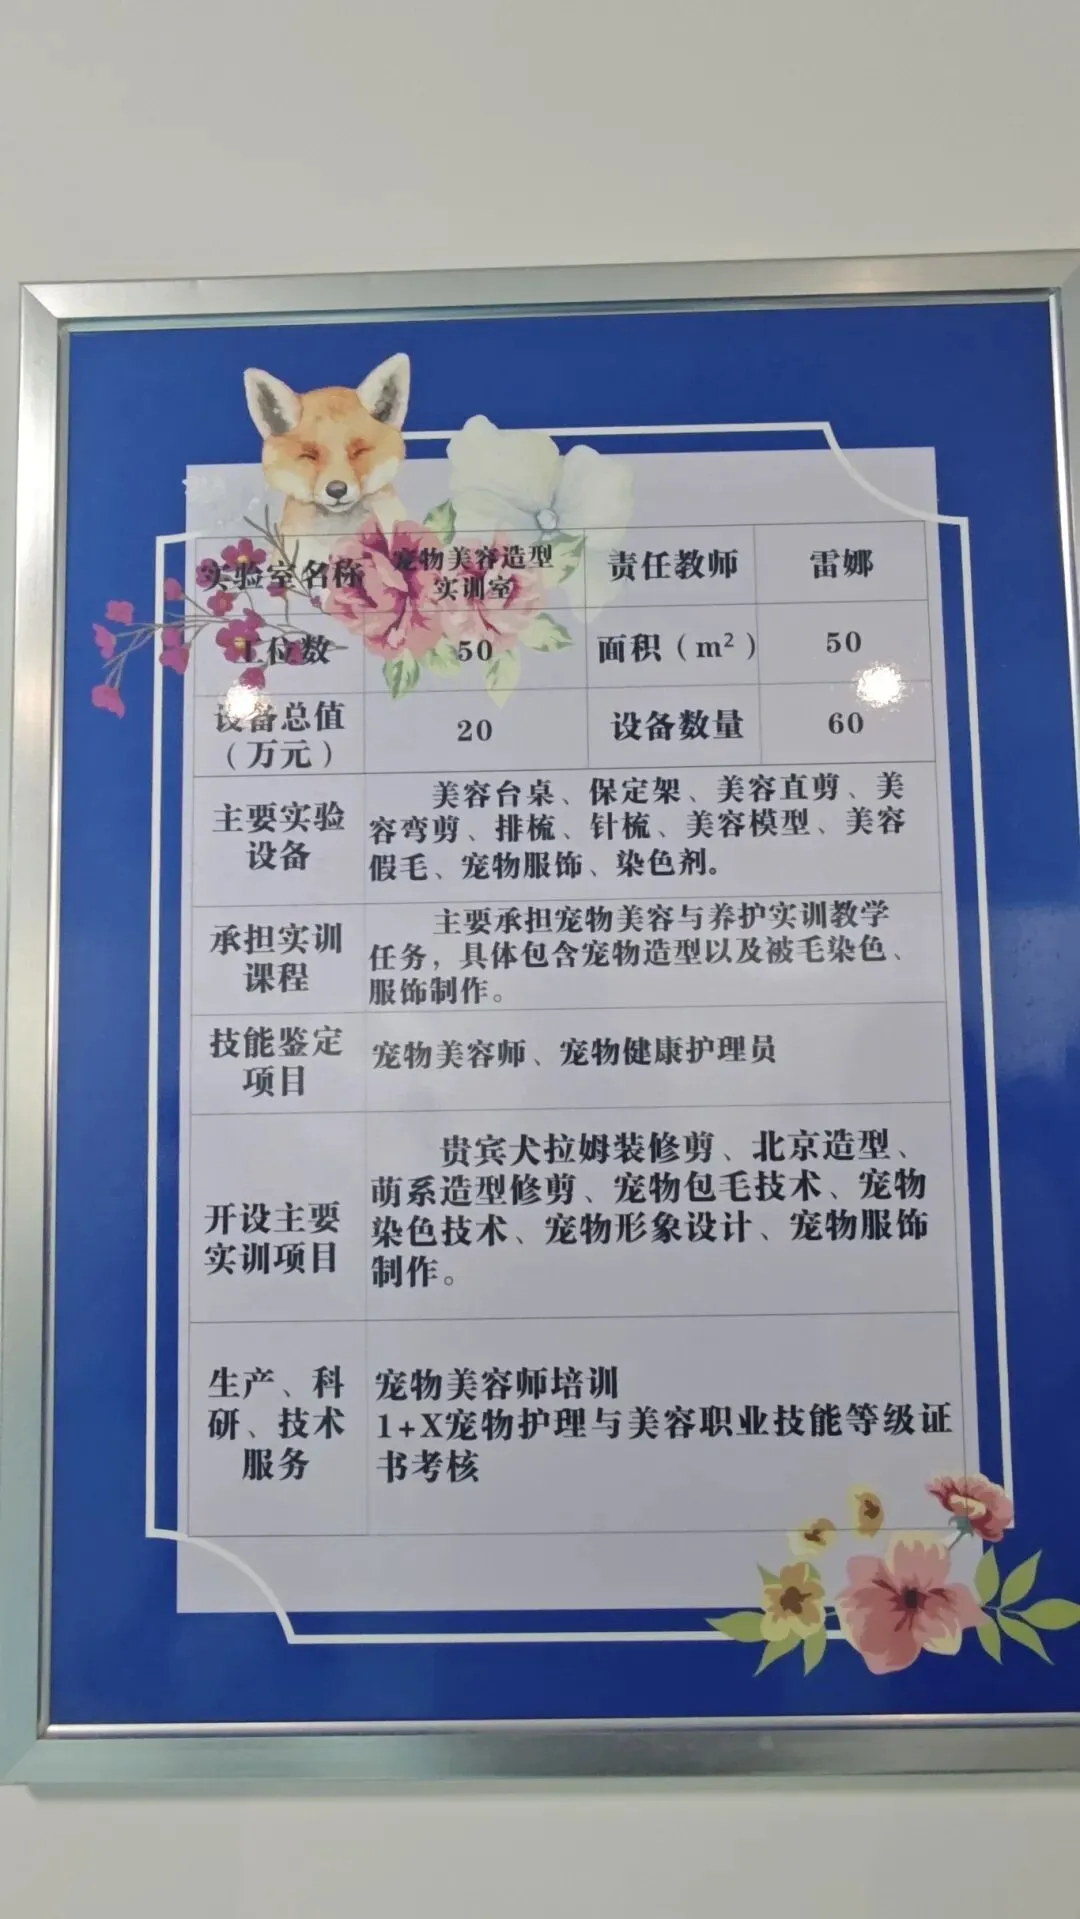 实验室名称 宠物美容造型 责任教师 雷娜
实训室
工位数 50 面积（m²） 50
设备总值 20 设备数量 60
（万元）
主要实验
设备
美容台桌、保定架、美容直剪、美
容弯剪、排梳、针梳、美容模型、美容
假毛、宠物服饰、染色剂。
承担实训
课程
主要承担宠物美容与养护实训教学
任务，具体包含宠物造型以及被毛染色、
服饰制作。
技能鉴定
项目
宠物美容师、宠物健康护理员
开设主要
实训项目
贵宾犬拉姆装修剪、北京造型、
萌系造型修剪、宠物包毛技术、宠物
染色技术、宠物形象设计、宠物服饰
制作。
生产、科
研、技术
服务
宠物美容师培训
1+X宠物护理与美容职业技能等级证
书考核